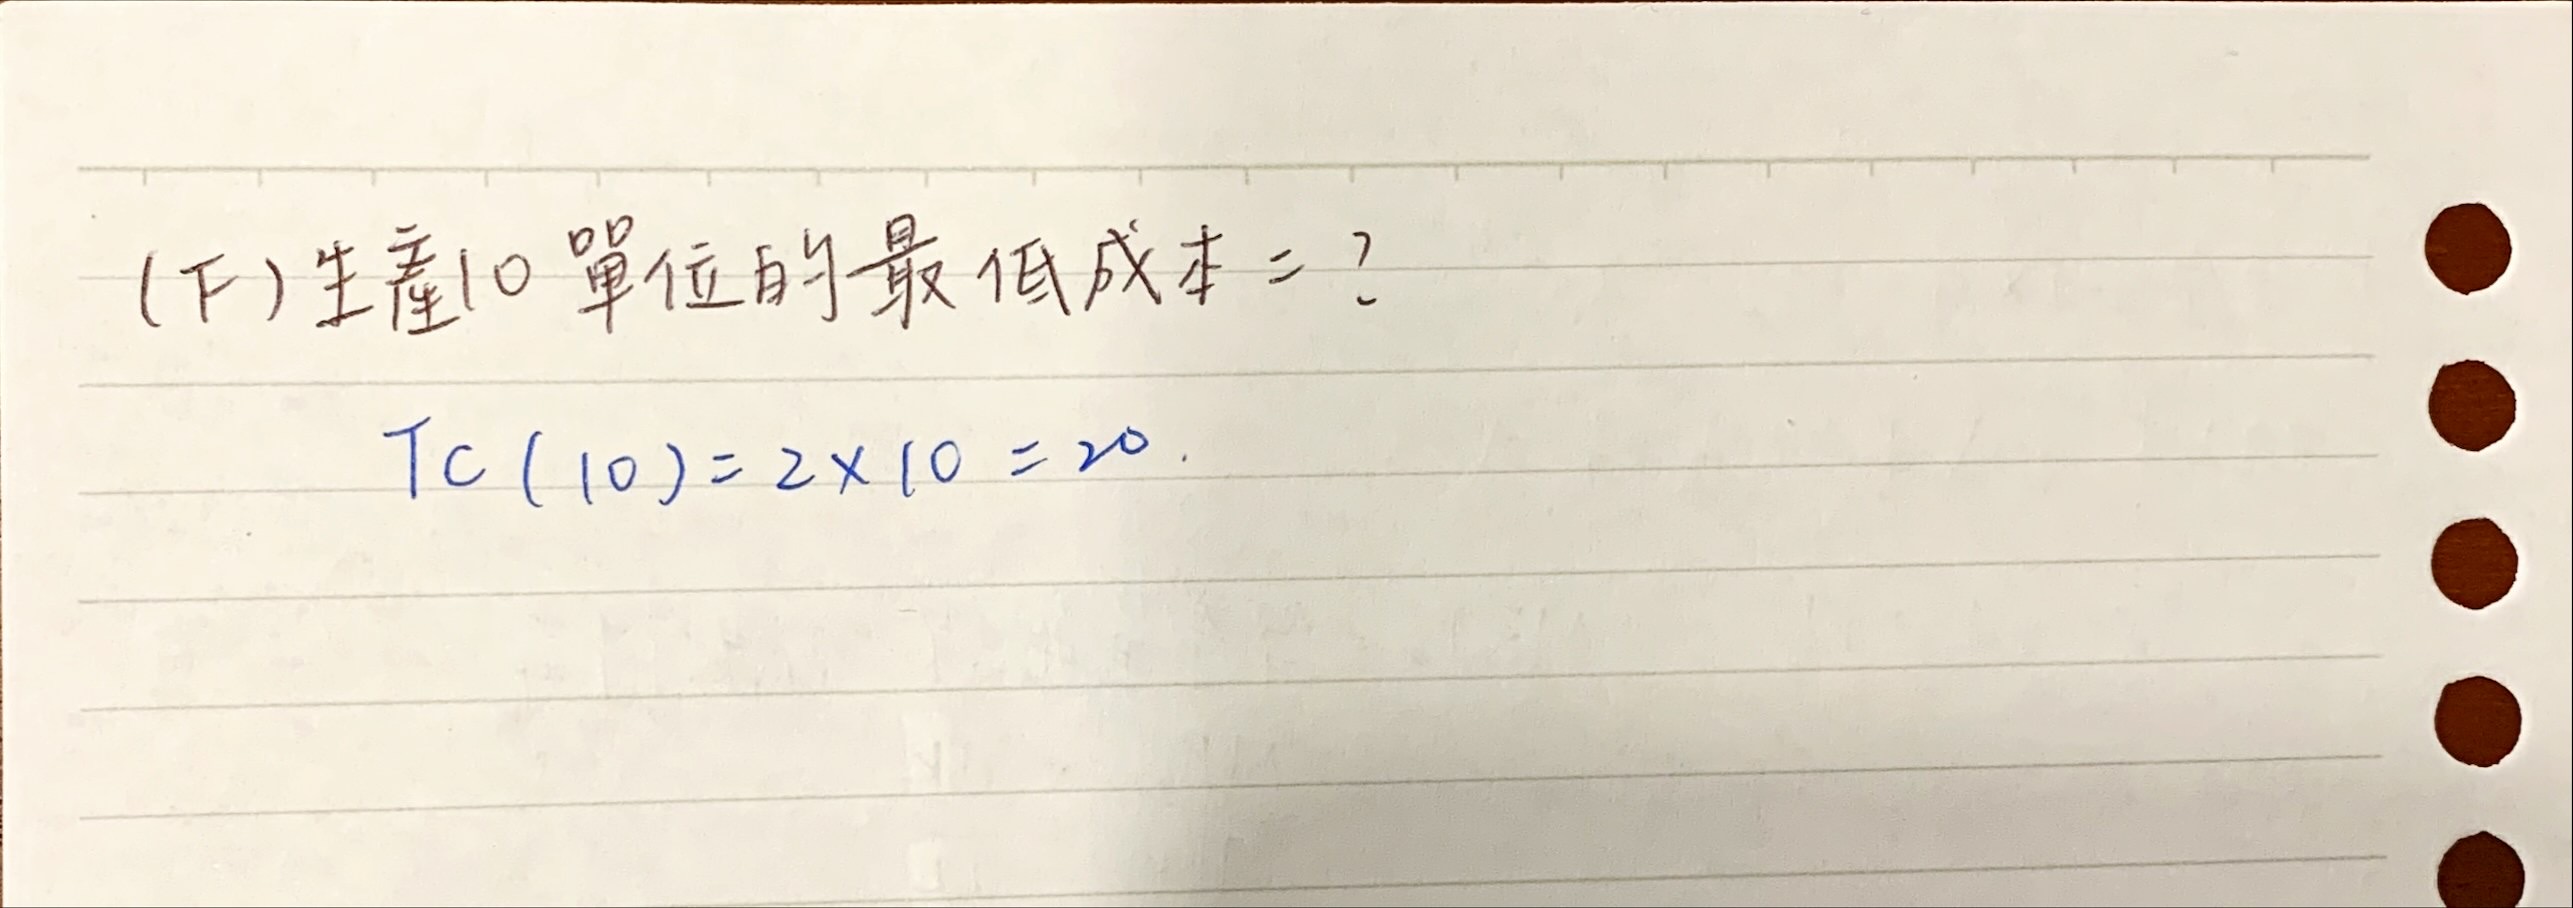 (F)生產10單位的最低成本=?
TC(10)=2×10=20.